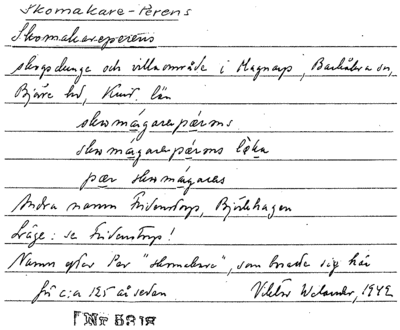 Skomakare-Perens
Skomakareperens
skogsdunge och villaområde i Magnarp, Barkåkra sn,
Bjäre hd, Krist. län
skomágarapǽrəns
skomágarapǽrəns lǫ̀ka
pær skomágaras
Andra namn Fridenstorp, Björkhagen
Läge: se Fridenstorp!
Namn efter Per "skomakare", som bodde sig här
för c:a 125 år sedan Viktor Welander, 1942